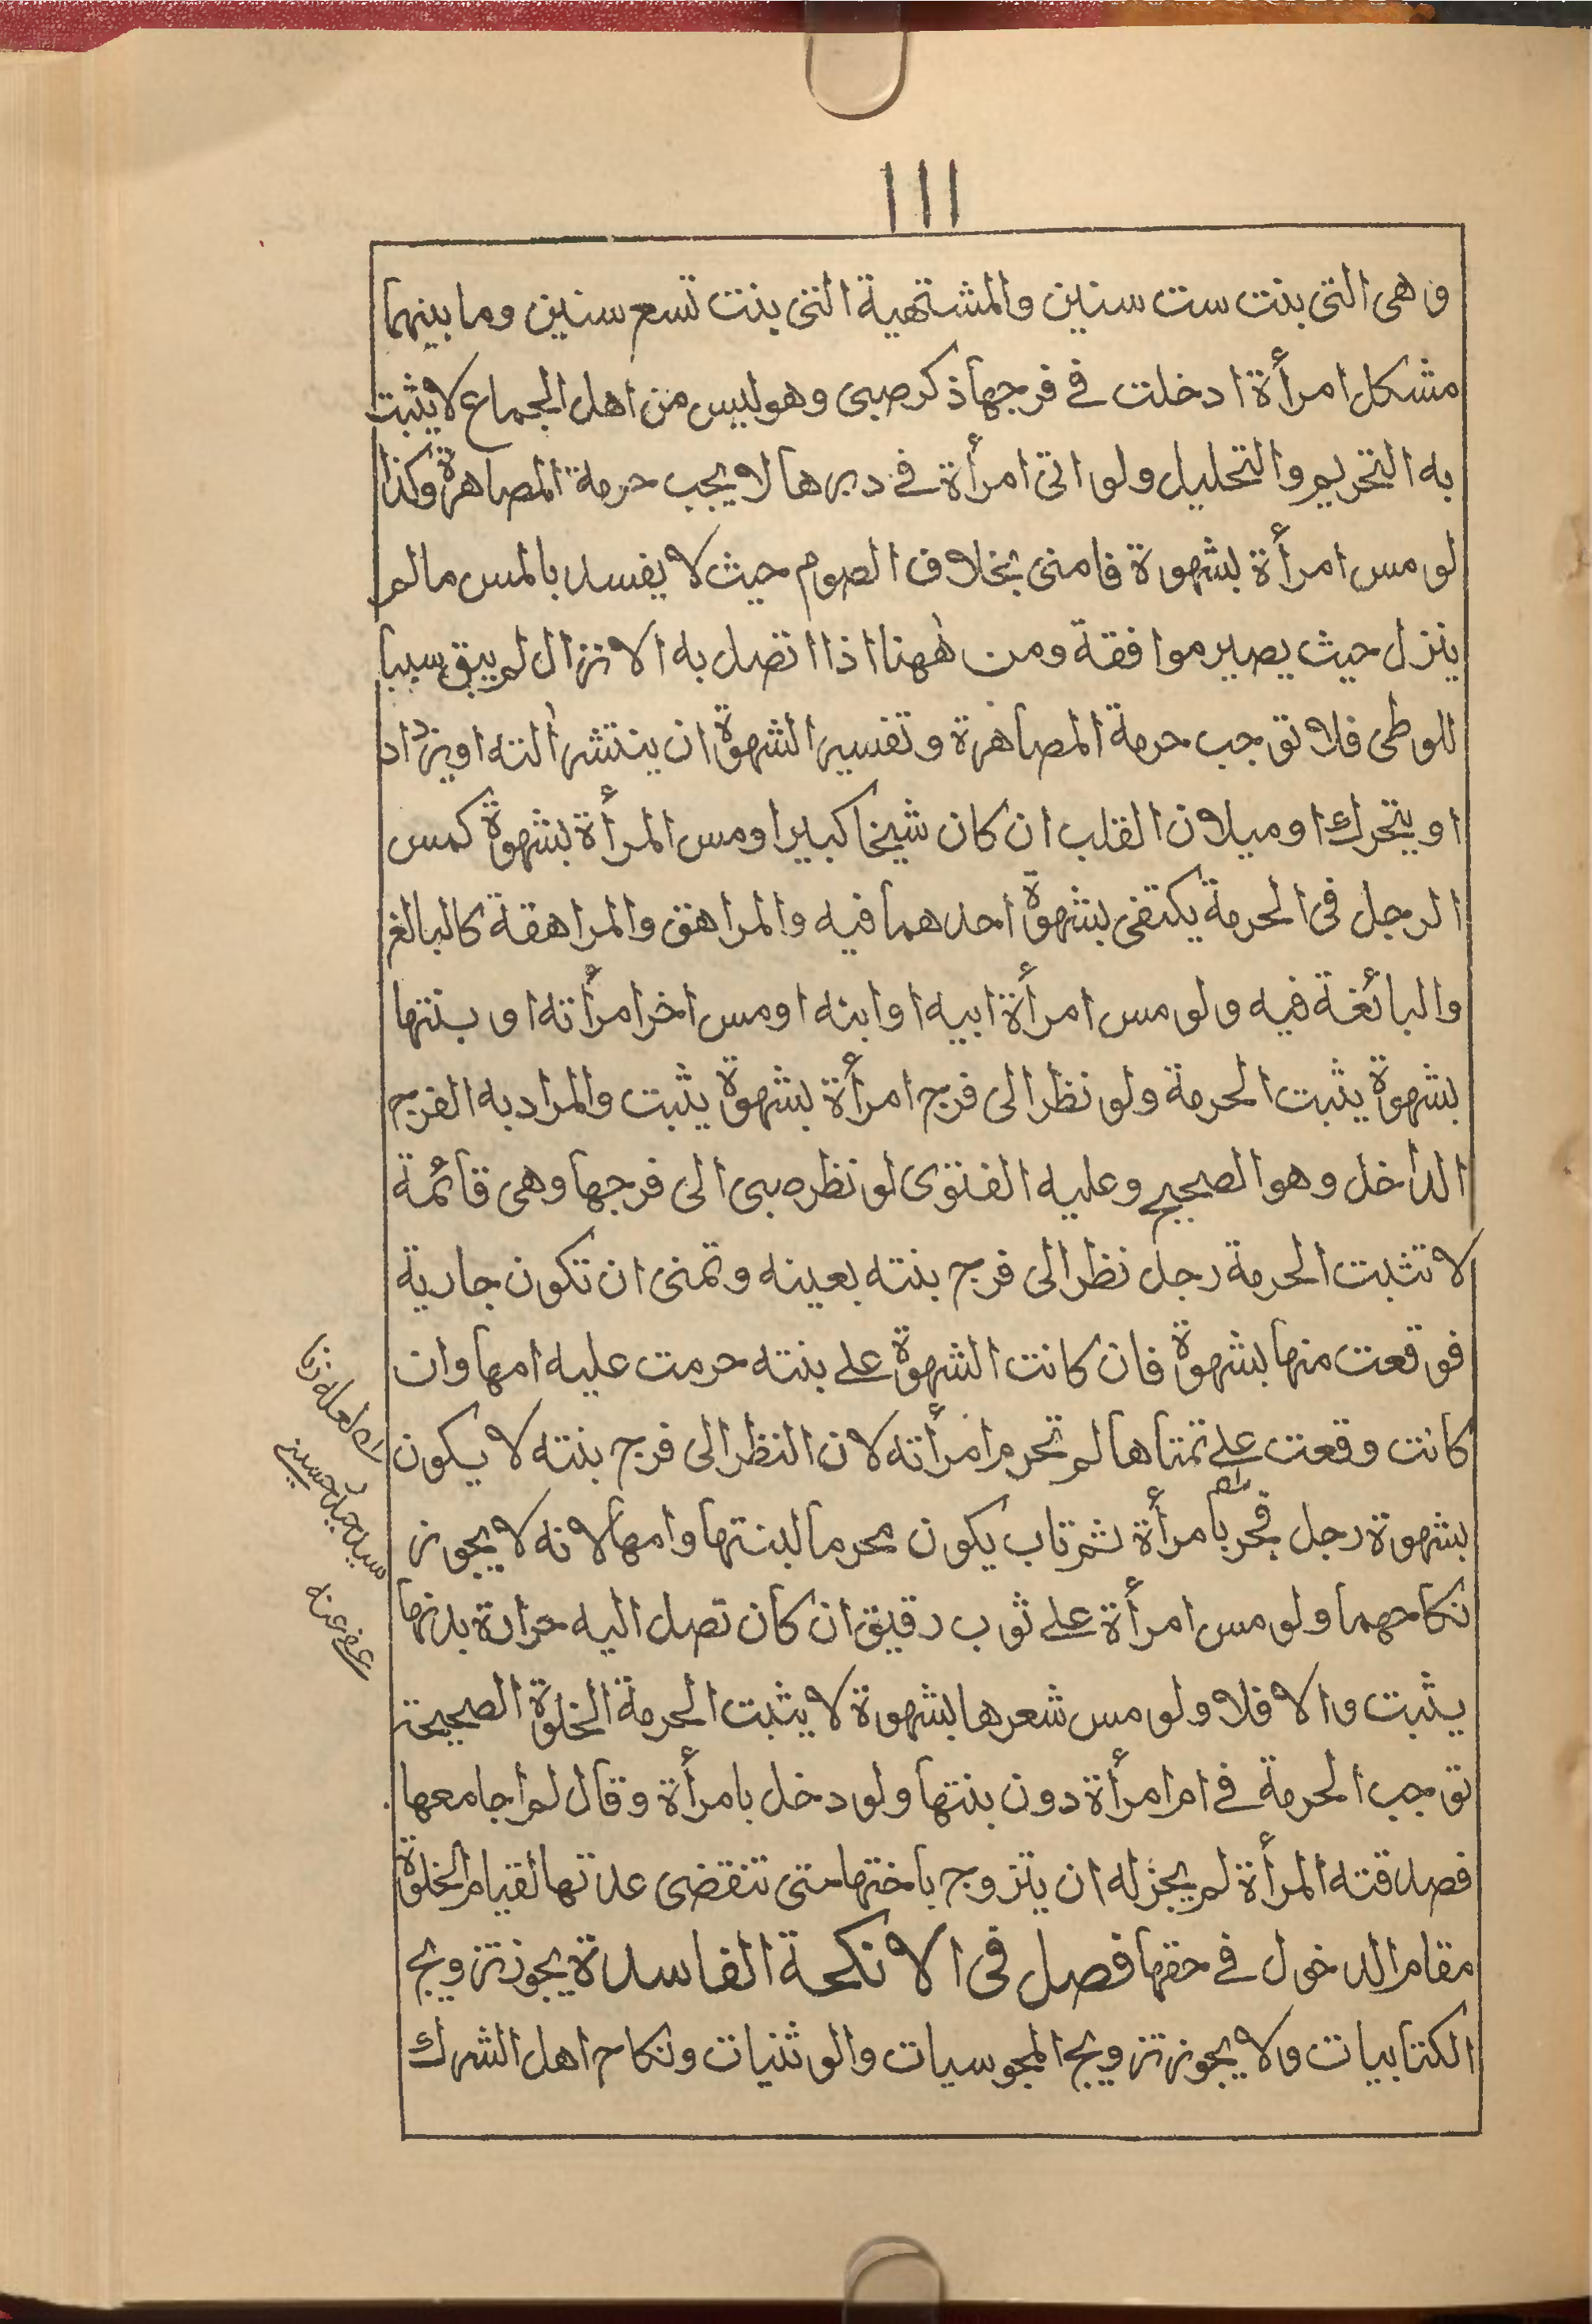 ١١١
وهى التى بنت ست سنين والمشتهية التى بنت تسع سنين وما بينهما
مشكل امرأة ادخلت فى فرجها ذكر صبى وهو ليس من اهل الجماع لا يثبت
به التحريم والتحليل ولو اتى امرأة فى دبرها لا يجب حرمة المصاهرة وكذا
لو مس امرأة بشهوة فامنى بخلاف الصوم حيث لا يفسد بالمس مالم
ينزل حيث يصير موافقة ومن ههنا اذا اتصل به الانزال لم يبق سببا
للوطى فلا توجب حرمة المصاهرة وتفسير الشهوة ان ينتشر اٰلته او يزداد
او يتحرك او ميلان القلب ان كان شيخا كبيرا ومس المرأة بشهوة كمس
الرجل فى الحرمة يكتفى بشهوة احدهما فيه والمراهق والمراهقة كالبالغ
والبائغة فيه ولو مس امرأة ابيه او ابنه او مس اخر امرأته او بنتها
بشهوة يثبت الحرمة ولو نظر الى فرج امرأة بشهوة يثبت والمراد به الفرج
الداخل وهو الصحيح وعليه الفتوى لو نظر صبى الى فرجها وهى قائمة
لا تثبت الحرمة رجل نظر الى فرج بنته بعينه وتمنى ان تكون جارية
فوقعت منها بشهوة فان كانت الشهوة على بنته حرمت عليه امها وان
كانت وقعت على تمناها لم تحرم امرأته لان النظر الى فرج بنته لا يكون
بشهوة رجل فجر بامرأة ثم تاب يكون محرما لبنتها وامها لانه لا يجوز
نكاحهما ولو مس امرأة على ثوب رقيق ان كان تصل اليه حرارة بدنها
يثبت والا فلا ولو مس شعرها بشهوة لا يثبت الحرمة الخلوة الصحيحة
توجب الحرمة فى ام امرأة دون بنتها ولو دخل بامرأة وقال لم اجامعها
فصدقته المرأة لم يجز له ان يتزوج باختها حتى تنقضى عدتها لقيام الخلوة
مقام الدخول فى حقها فصل فى الانكحة الفاسدة يجوز تزويج
الكتابيات ولا يجوز تزويج المجوسيات والوثنيات ونكاح اهل الشرك
لعله زنا
سيد حسينى
عفى عنه